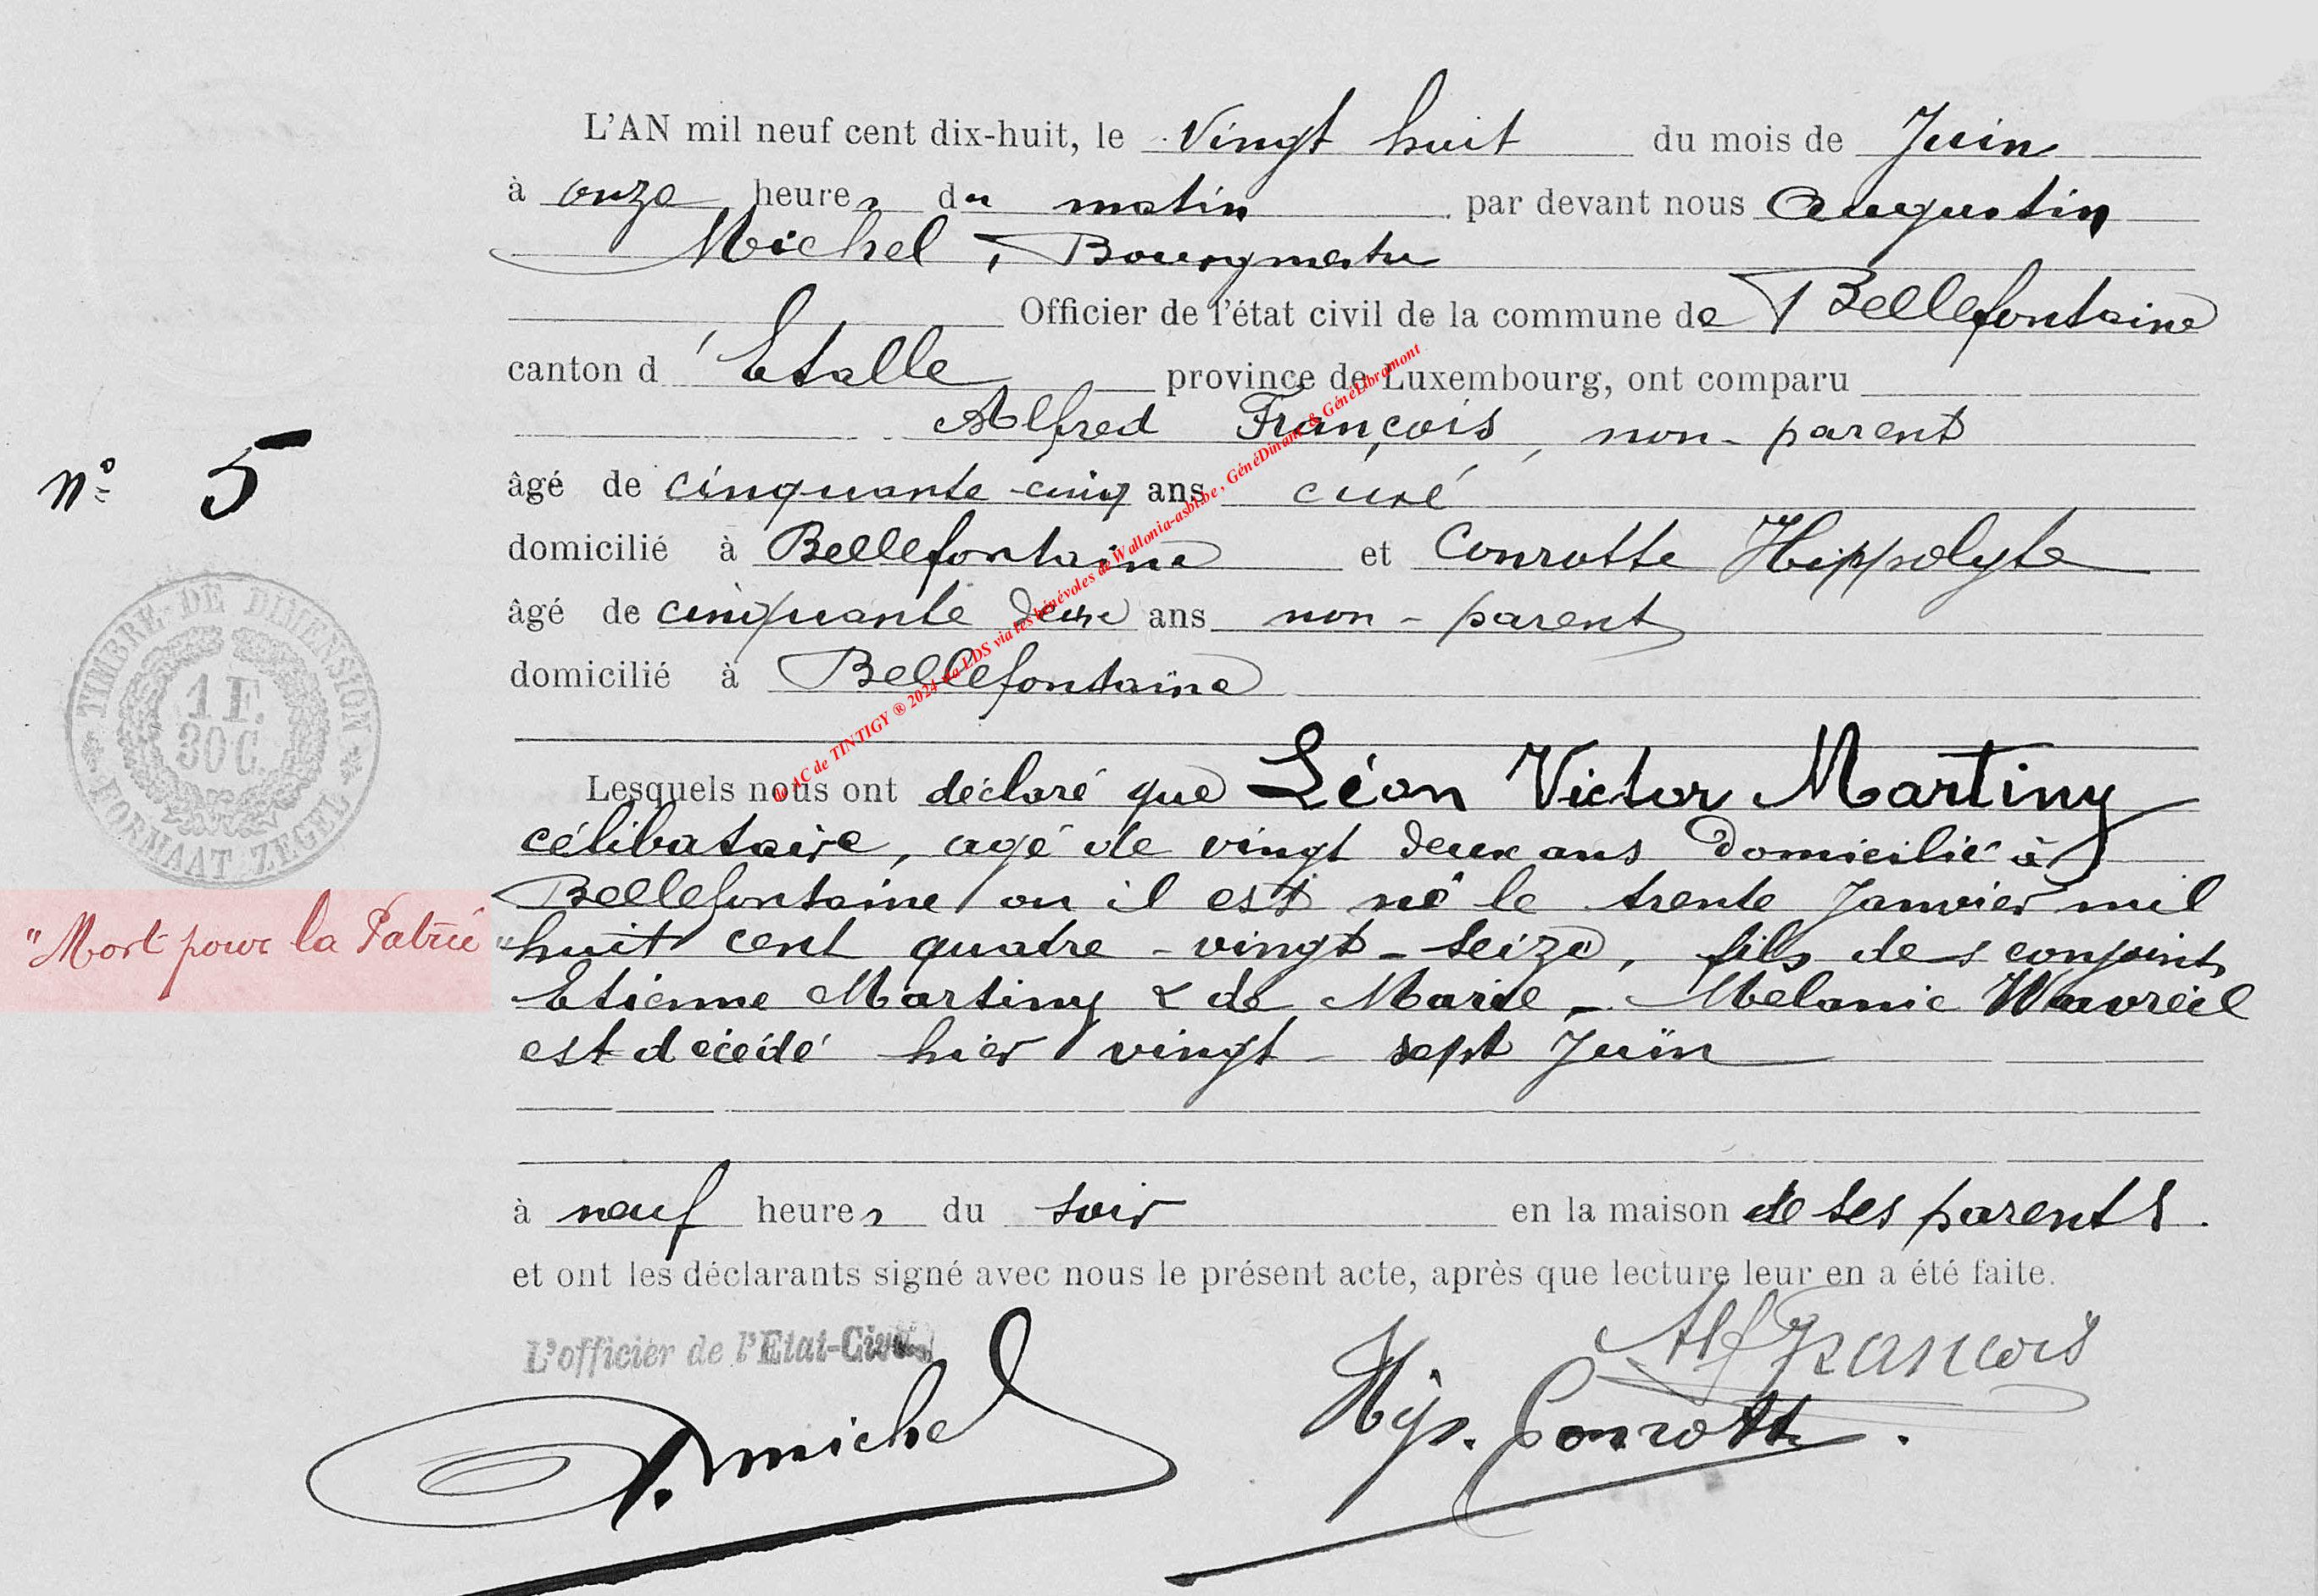 L'AN mil neuf cent dix-huit, le Vingt huit du mois de Juin
à onze heures du matin par devant nous Augustin
Michel, Bourgmestre
Officier de l'état civil de la commune de Bellefontaine
canton d'Etalle province de Luxembourg, ont comparu
Alfred François, non-parent
n° 5
âgé de cinquante-cinq ans curé
domicilié à Bellefontaine et Conrotte Hippolyte
âgé de cinquante deux ans non-parent
domicilié à Bellefontaine
TIMBRE DE DIMENSION
1 F.
30 C.
FORMAAT ZEGEL
Lesquels nous ont déclaré que Léon Victor Martiny
célibataire, agé de vingt deux ans domicilié à
Bellefontaine ou il est né le trente Janvier mil
"Mort pour la Patrie"
huit cent quatre-vingt-seize, fils des conjoints
Etienne Martiny & de Marie-Melanie Wavreil
est décédé hier vingt-sept Juin
à neuf heures du soir en la maison de ses parents.
et ont les déclarants signé avec nous le présent acte, après que lecture leur en a été faite.
L'officier de l'Etat-Civil
Alf François
Hip. Conrotte.
A. Michel
AC de TINTIGY ® 2024 via LDS via les bénévoles de Wallonia-asbl.be, GénéDinant & GénéLibramont